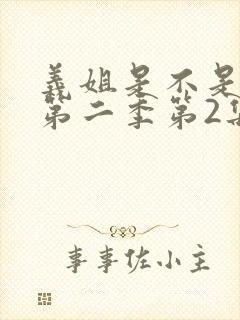 義姐是不是
第二季第2集
事事佐小主